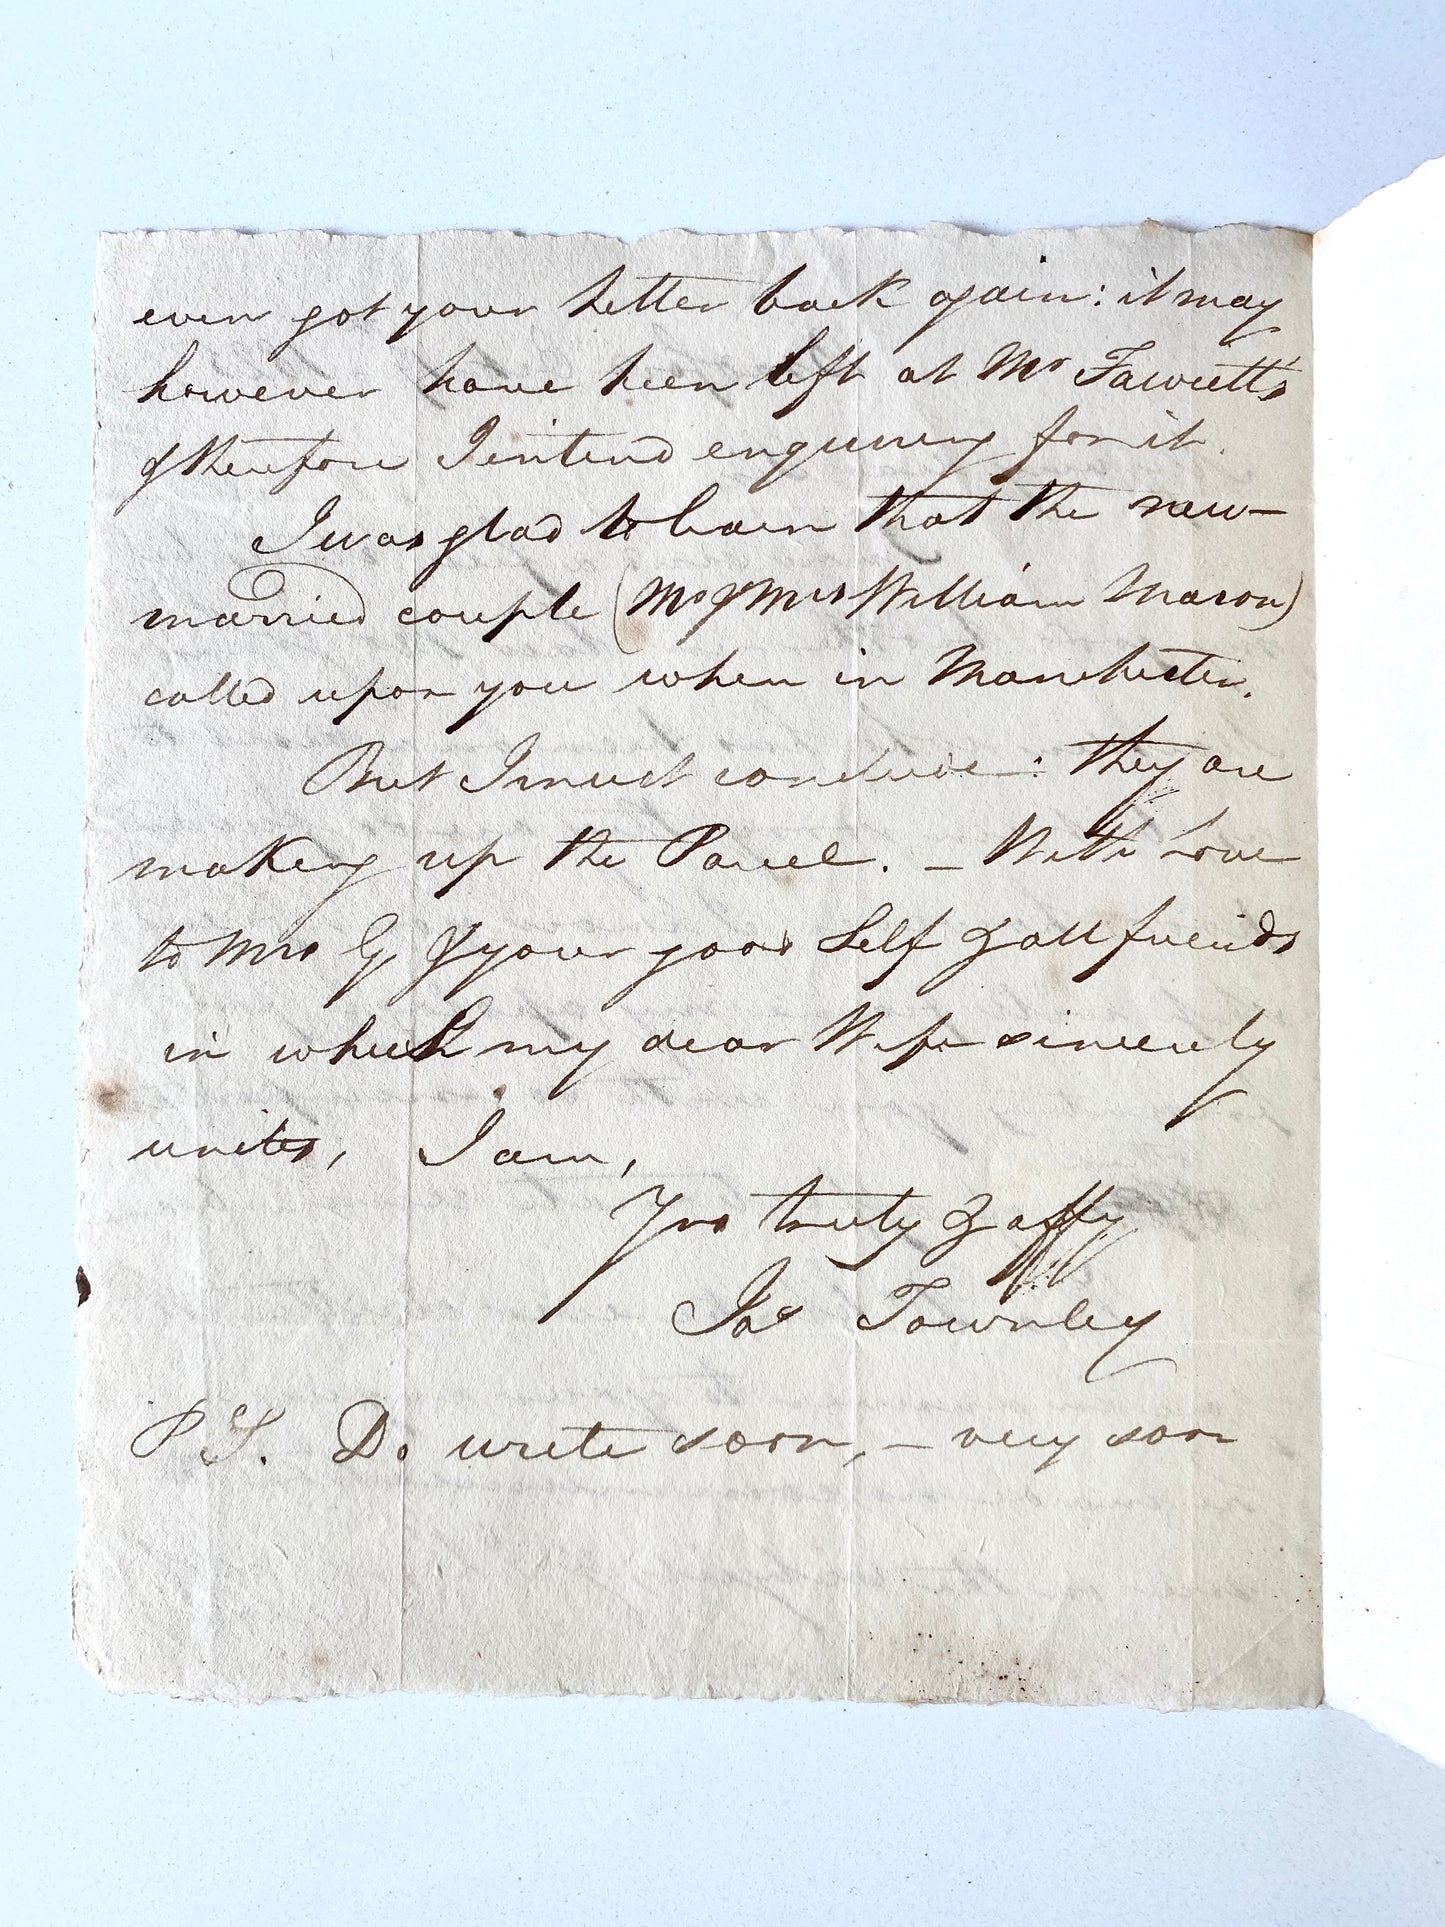 even got your Letter back again: it may
however have been left at Mr Fawcett's
& therefore I intend enquiring for it.
I was glad to learn that the new-
married couple (Mr & Mrs William Mason)
called upon you when in Manchester.
But I must conclude: they are
making up the Parcel. – With Love
to Mrs G & your good Self & all friends
in which my dear Wife sincerely
unites, I am,
Yrs truly & affy
Jas Townley
PS. Do write soon, – very soon